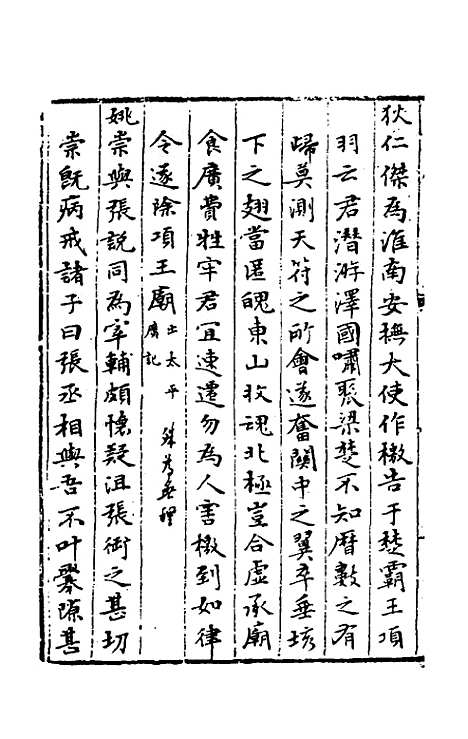 狄仁傑為淮南安撫大使作檄告于楚霸王項
羽云君潛游澤國嘯聚梁楚不知曆數之有
歸莫測天符之所會遂奮關中之翼卒垂垓
下之翅當匿魄東山收魂北極豈合虛承廟
食廣費牲牢君宜速遷勿為人害檄到如律
令遂除項王廟出太平廣記 殊為無理
姚崇與張說同為宰輔頗懷疑沮張銜之甚切
崇既病戒諸子曰張丞相與吾不叶釁隙甚